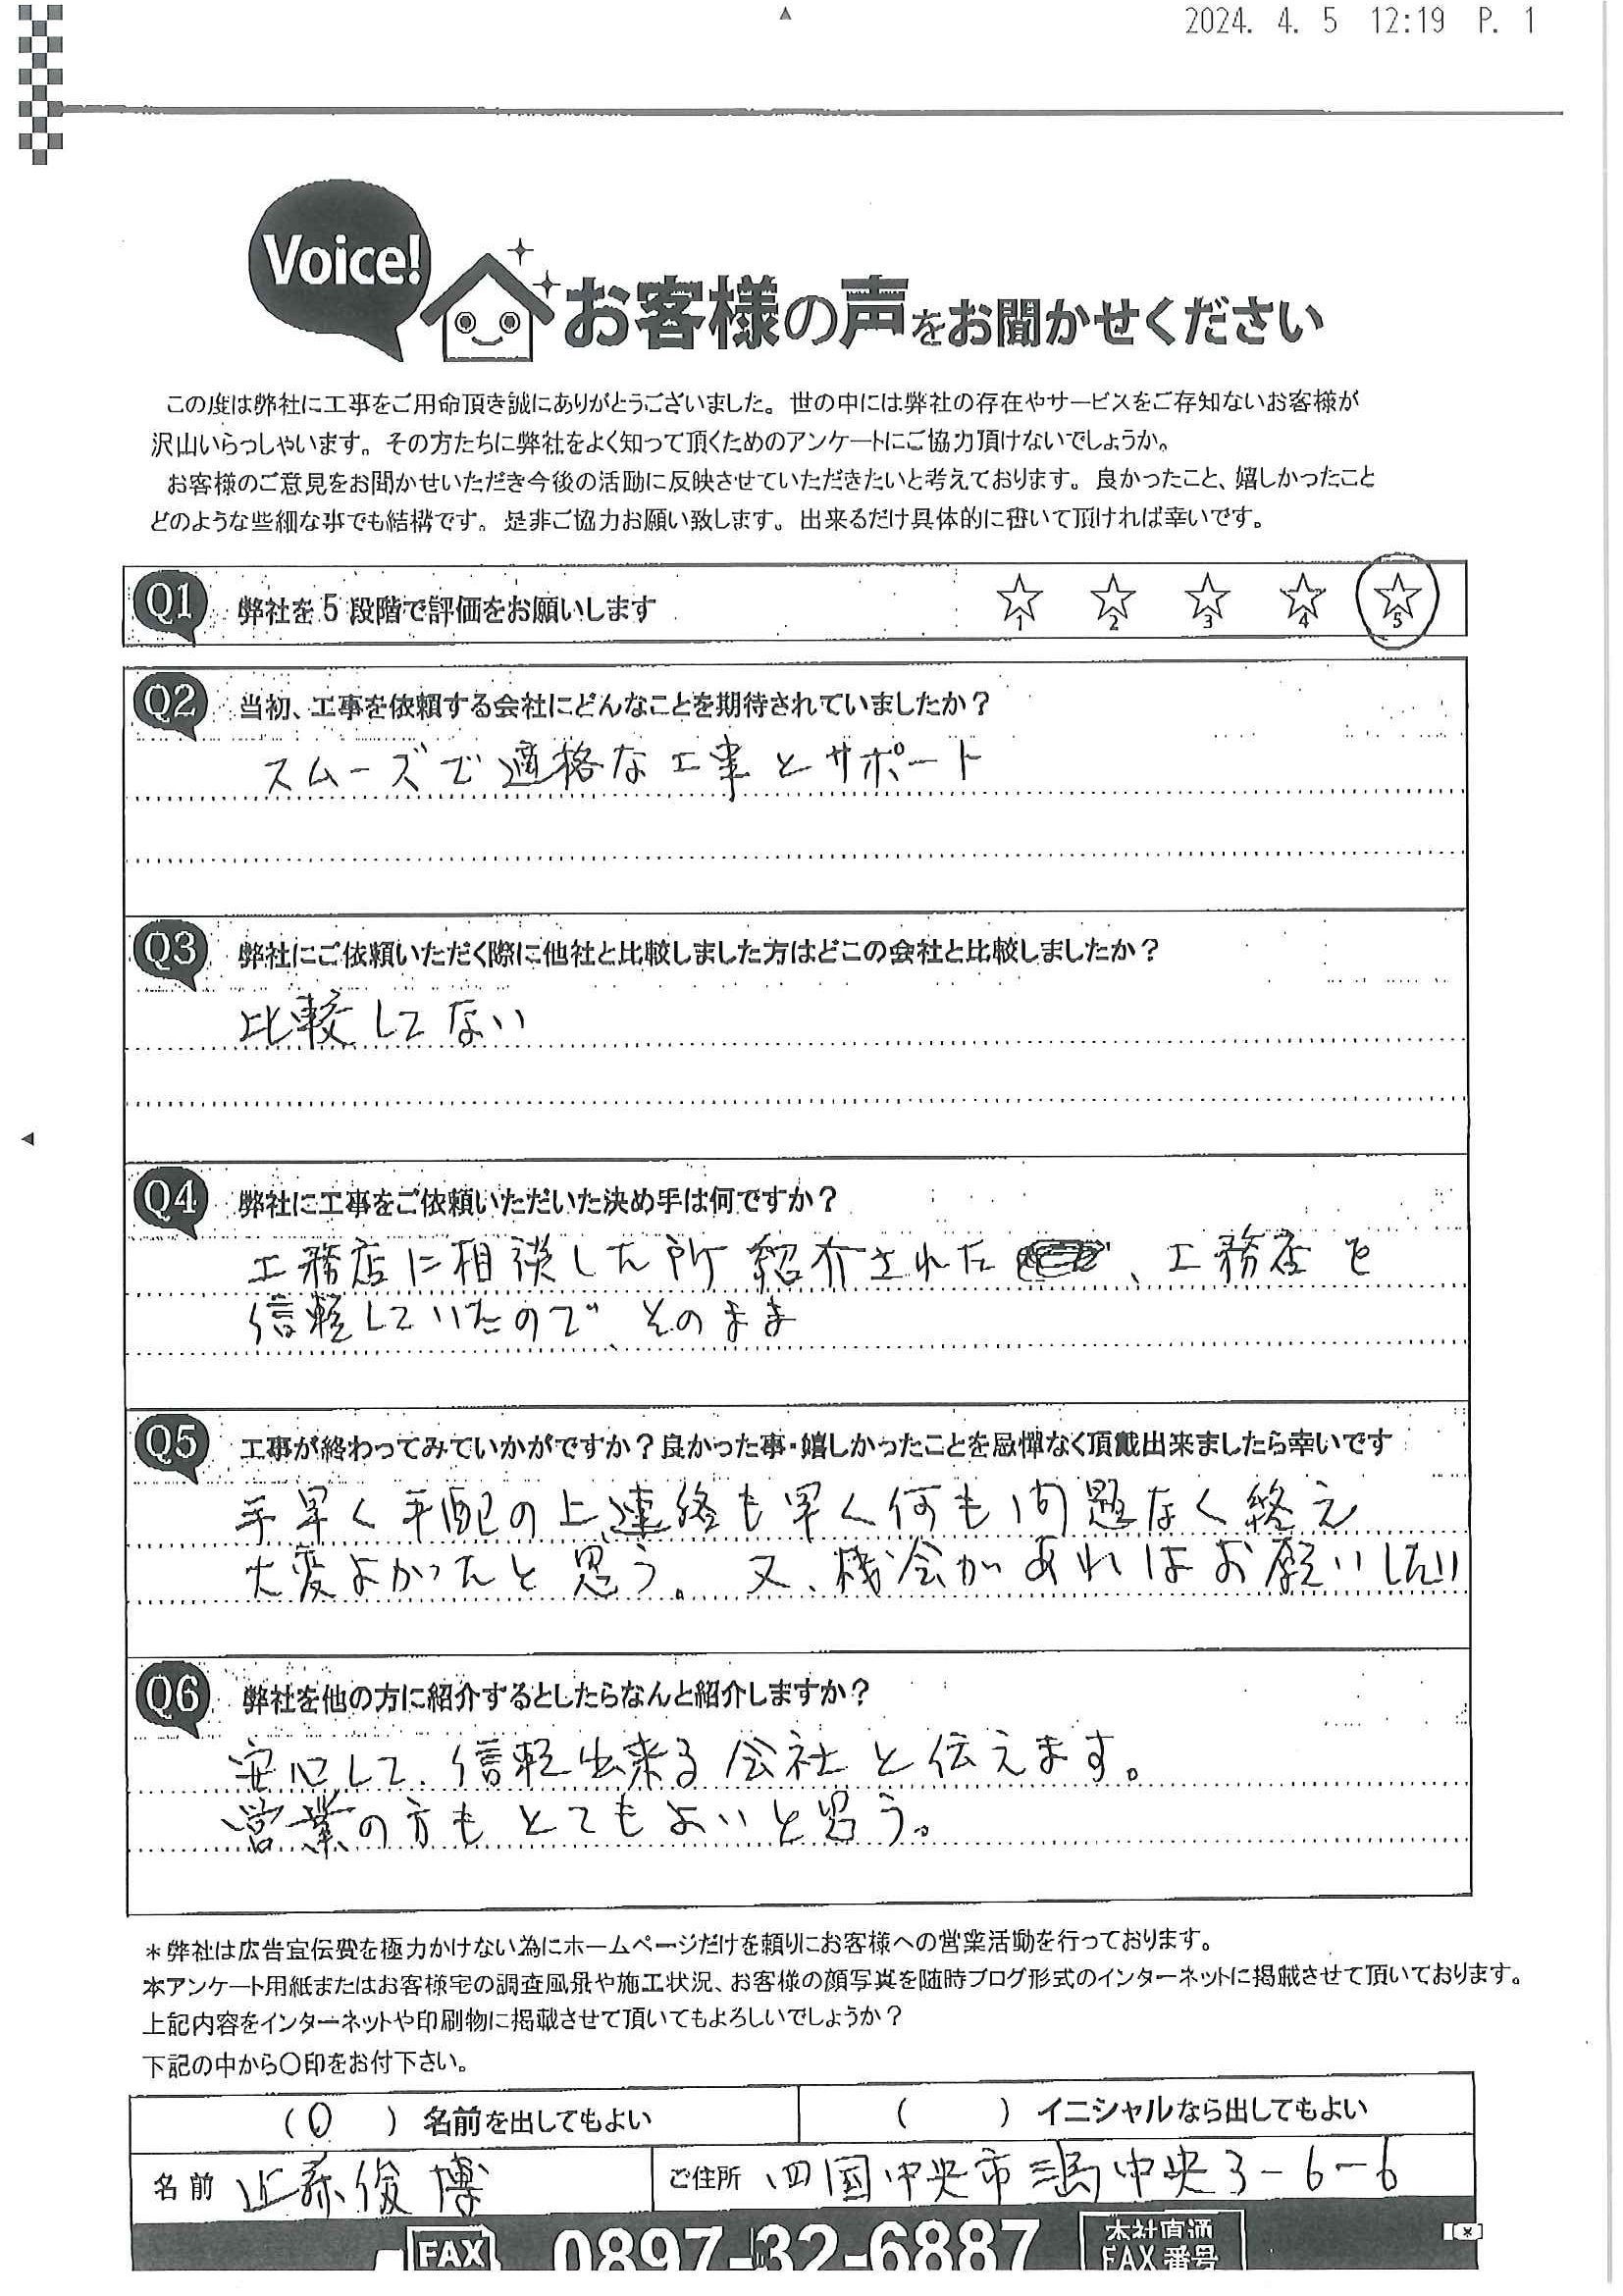 2024. 4. 5 12:19 P. 1
Voice!
お客様の声をお聞かせください
この度は弊社に工事をご用命頂き誠にありがとうございました。世の中には弊社の存在やサービスをご存知ないお客様が
沢山いらっしゃいます。その方たちに弊社をよく知って頂くためのアンケートにご協力頂けないでしょうか。
お客様のご意見をお聞かせいただき今後の活動に反映させていただきたいと考えております。良かったこと、嬉しかったこと
どのような些細な事でも結構です。是非ご協力お願い致します。出来るだけ具体的に書いて頂ければ幸いです。
Q1 弊社を5段階で評価をお願いします ☆1 ☆2 ☆3 ☆4 ☆5
Q2 当初、工事を依頼する会社にどんなことを期待されていましたか?
スムーズで適格な工事とサポート
Q3 弊社にご依頼いただく際に他社と比較しました方はどこの会社と比較しましたか?
比較してない
Q4 弊社に工事をご依頼いただいた決め手は何ですか?
工務店に相談した所紹介された、工務店を
信頼していたので、そのまま
Q5 工事が終わってみていかがですか?良かった事・嬉しかったことを忌憚なく頂戴出来ましたら幸いです
手早く手配の上、連絡も早く何も問題なく終え
大変よかったと思う。又、機会があればお願いしたい
Q6 弊社を他の方に紹介するとしたらなんと紹介しますか?
安心して、信頼出来る会社と伝えます。
営業の方もとてもよいと思う。
*弊社は広告宣伝費を極力かけない為にホームページだけを頼りにお客様への営業活動を行っております。
本アンケート用紙またはお客様宅の調査風景や施工状況、お客様の顔写真を随時ブログ形式のインターネットに掲載させて頂いております。
上記内容をインターネットや印刷物に掲載させて頂いてもよろしいでしょうか?
下記の中から〇印をお付下さい。
(〇) 名前を出してもよい ( ) イニシャルなら出してもよい
名前 近藤俊博 ご住所 四国中央市三島中央3-6-6
FAX 0897-32-6887 本社直通
FAX番号